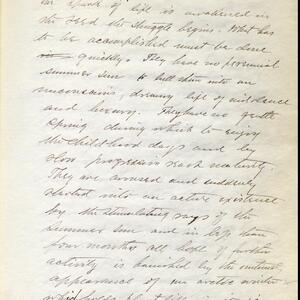 spark of life is awakened in
the seed the struggle begins. What has
to be accomplished must be done
quickly. They have no perennial
summer sun to lull them into an
unconscious, dreamy life of indolence
and luxury. They have no gentle
Spring during which to enjoy
the childhood days and by
slow progression reach maturity.
They are aroused and suddenly
elected into an active existence
by the stimulating rays of the
summer sun and in less than
four months all hope of further
activity is banished by the
appearance of an arctic winter